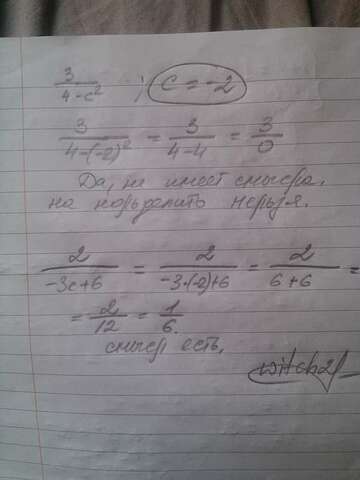 3/(4-c²) ; c = -2
3/(4-(-2)²) = 3/(4-4) = 3/0
Да, не имеет смысла,
на ноль делить нельзя.
2/(-3c+6) = 2/(-3·(-2)+6) = 2/(6+6) =
= 2/12 = 1/6.
смысл есть.
witch21